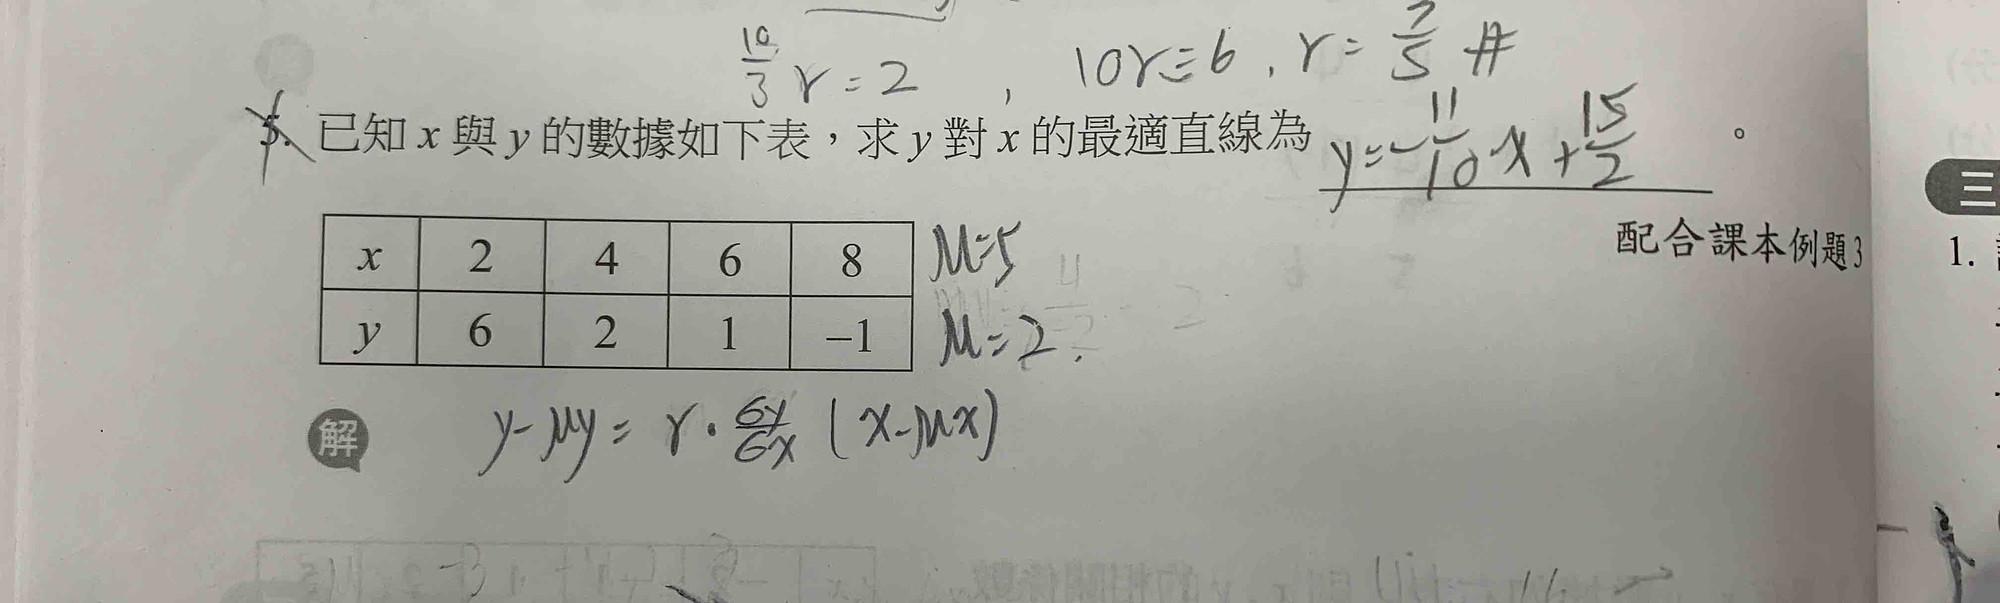 10/3 r = 2 , 10r = 6 , r = 3/5 #
5. 已知 x 與 y 的數據如下表，求 y 對 x 的最適直線為 y = -11/10 x + 15/2 。
配合課本例題3
x 2 4 6 8 μ=5
y 6 2 1 –1 μ=2
解 y - μy = r · σy/σx (x - μx)
三
1.